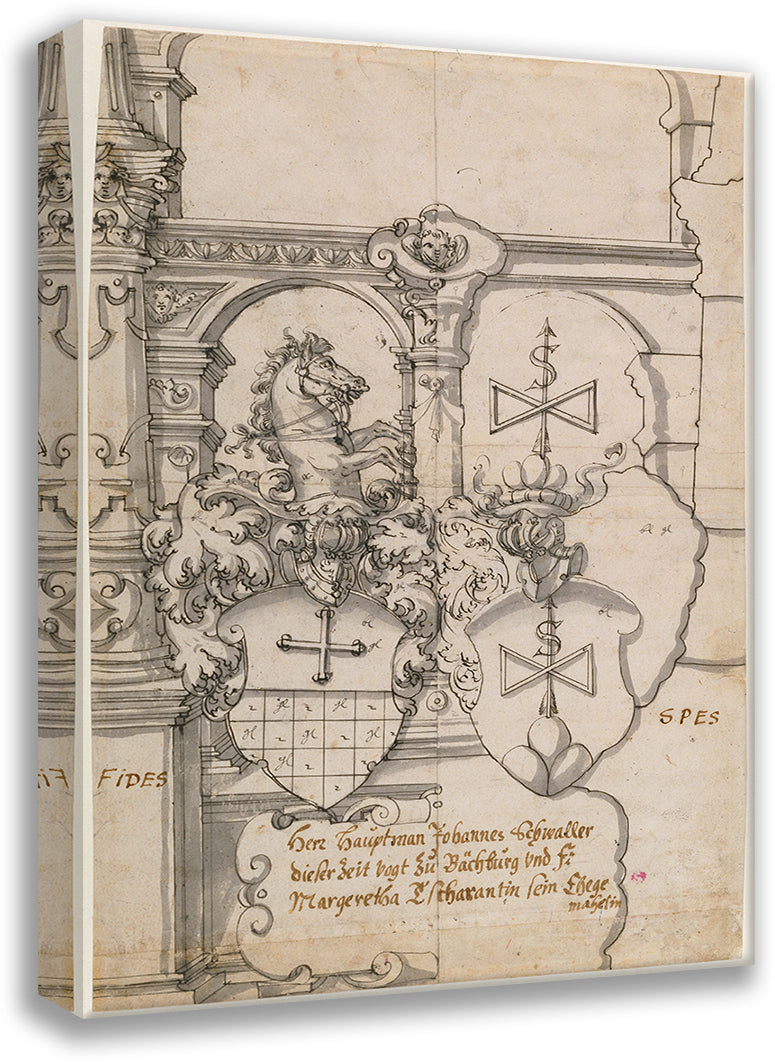 S
S
SPES
FIDES
Herr Hauptman Johannes Schwaller
dieser Zeit vogt zu Bächburg vnd F:
Margeretha Tscharantin sein Ehege
mahelin